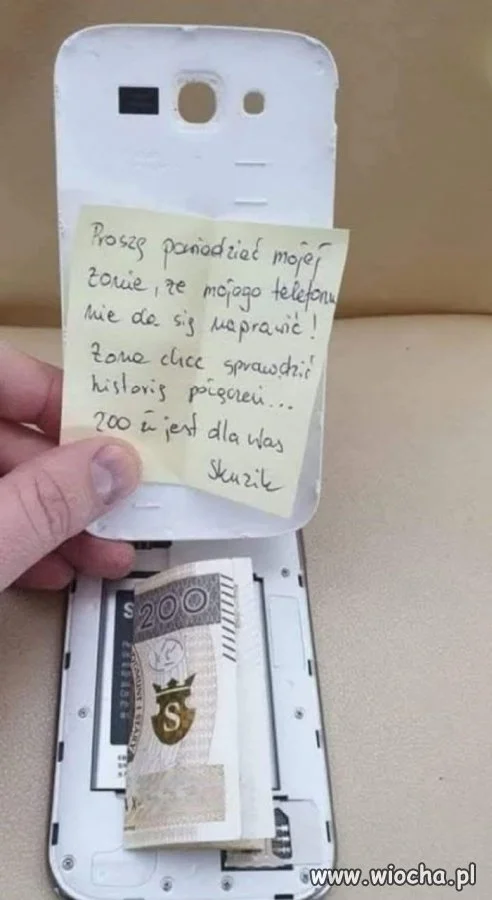 Proszę powiedzieć mojej
żonie, że mojego telefonu
nie da się naprawić!
Żona chce sprawdzić
historię połączeń...
200 zł jest dla Was
200
S
ZYGMUNT I STARY
www.wiocha.pl